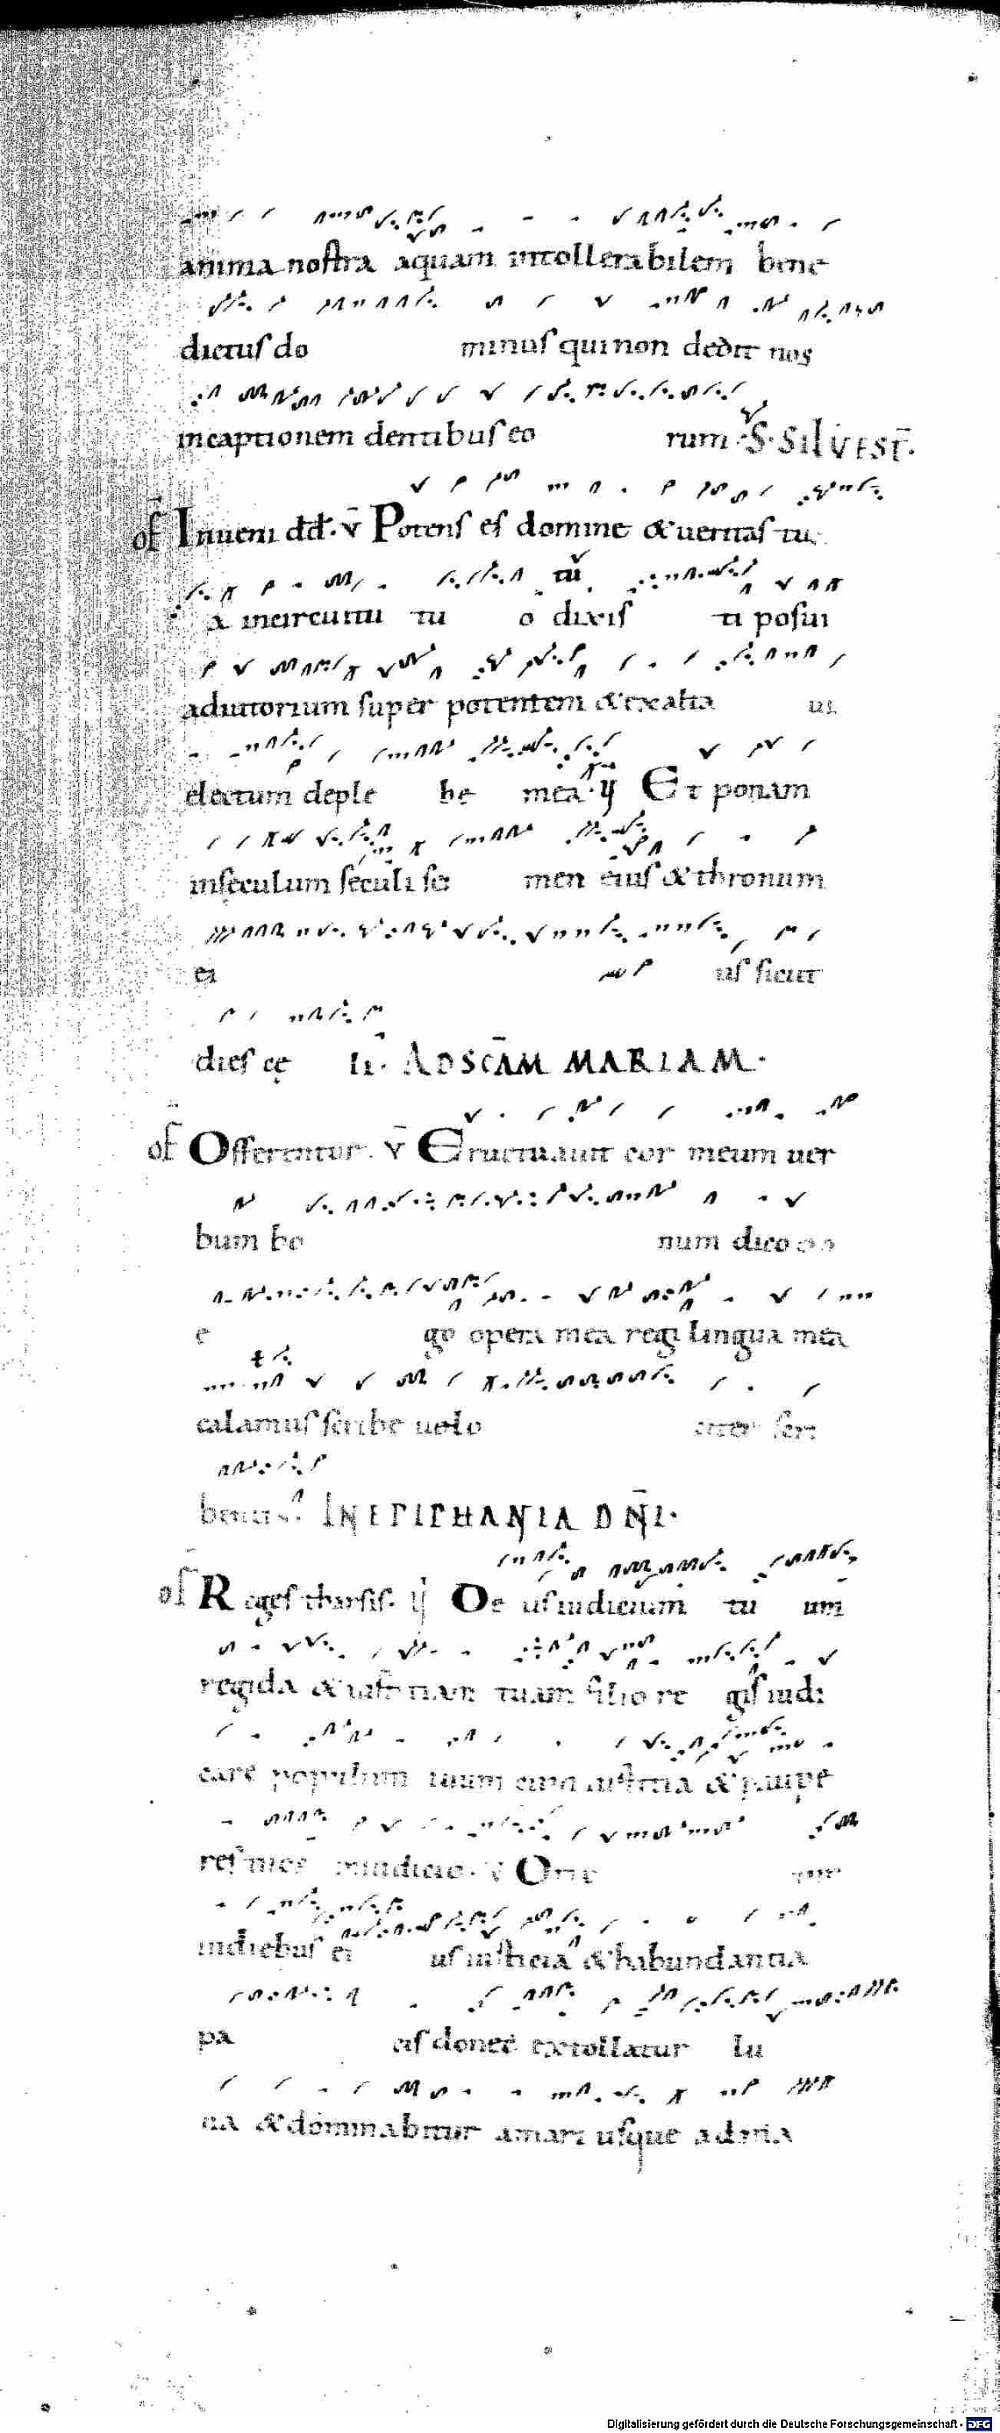 anima nostra aquam intollerabilem bene
dictus do minus qui non dedit nos
incaptionem dentibus eo rum S. SILVEST̄.
of̄ Inueni dd̄. v̄ Potens es domine & ueritas tu
a incircuitu tu o tū dixis ti posui
adiutorium super potentem & exalta ui
electum deple be mea. ij Et ponam
inseculum seculi se men eius & thronum
ei us sicut
dies cę li. AD SCĀM MARIAM.
of̄ Offerentur. v̄ Eructauit cor meum uer
bum bo num dico
e go opera mea regi lingua mea
calamus scribe uelo citer scri
bentis. IN EPIPHANIA DN̄I.
of̄ Reges tharsis. De us iudicium tu um
regi da & iusticiam tuam filio re gis iudi
care populum tuum cum iusticia & paupe
res in iudicio. v Orie tur
indiebus ei us iusticia & habundantia
pa cis donec extollatur lu
na & dominabitur amari usque ad
Digitalisierung gefördert durch die Deutsche Forschungsgemeinschaft - DFG